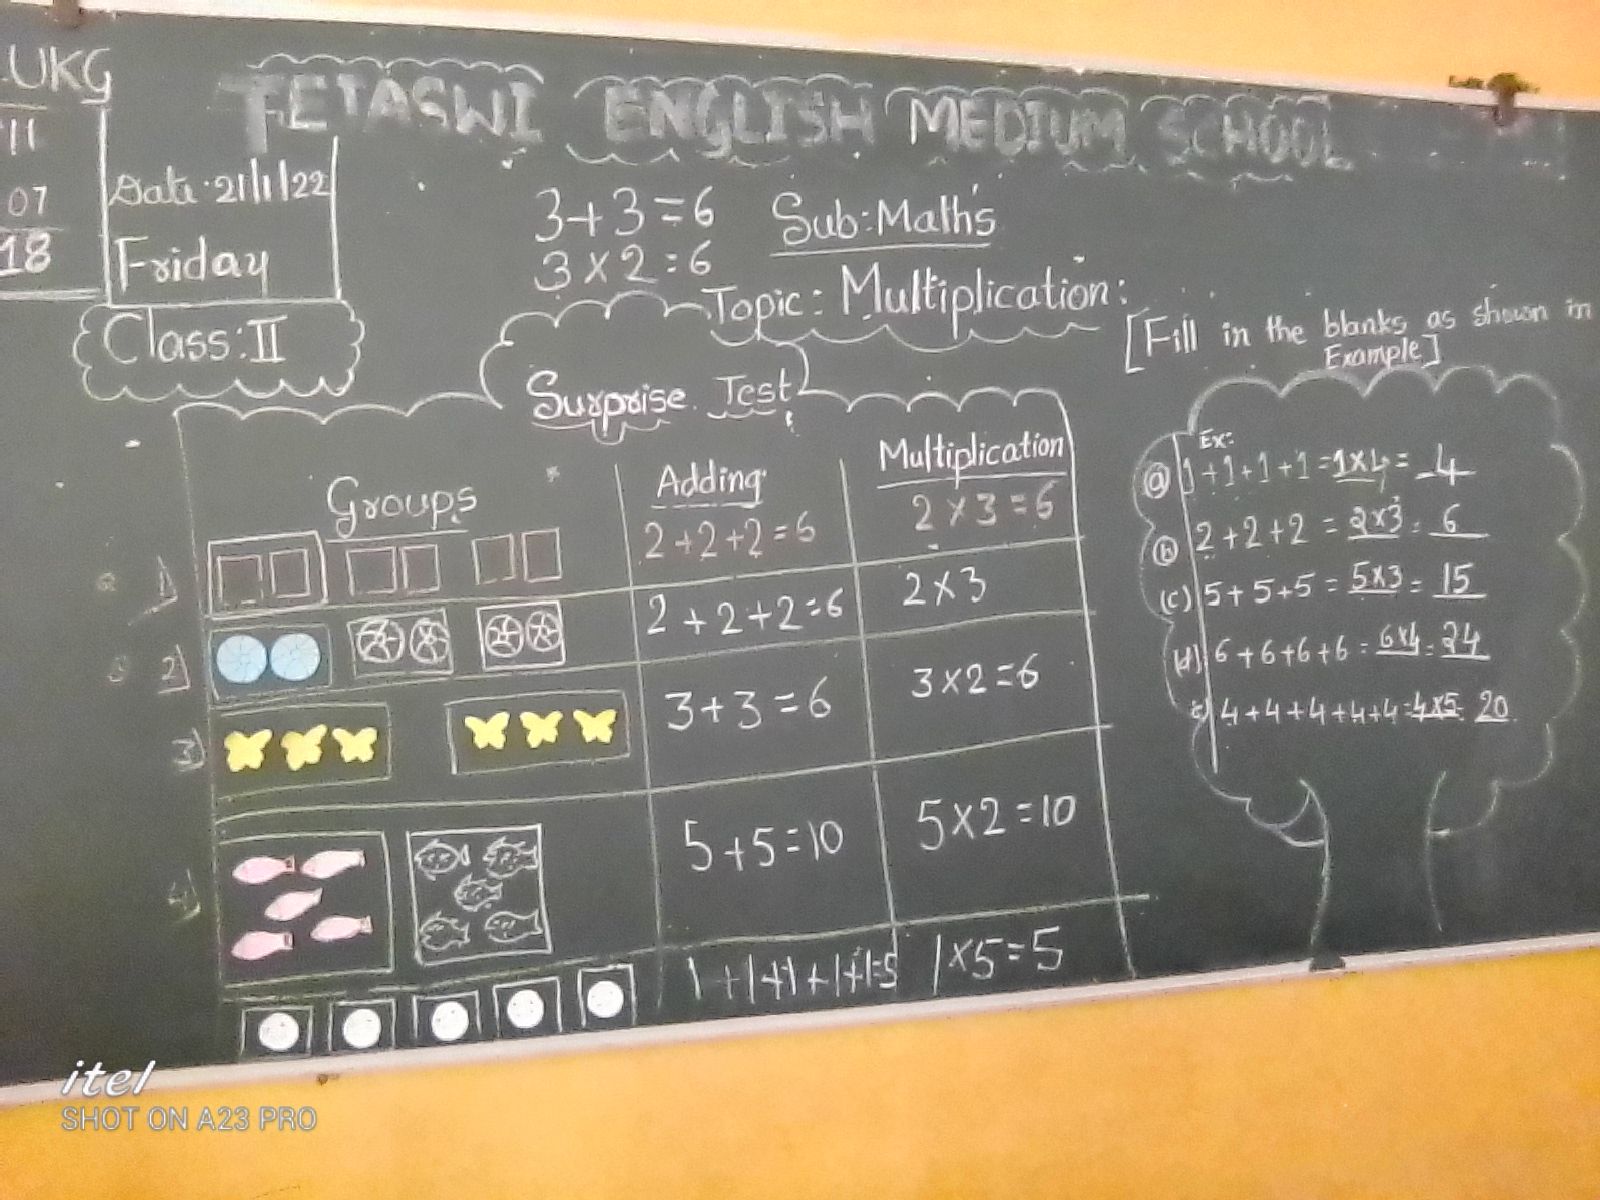 UKG
11
07
18
TETASWI ENGLISH MEDIUM SCHOOL
Date: 21/1/22
Friday
Class: II
3+3=6
3×2=6
Sub: Math's
Topic: Multiplication:
Surprise Test
Groups
Adding
Multiplication
1)
2+2+2=6
2×3=6
2)
2+2+2=6
2×3
3)
3+3=6
3×2=6
4)
5+5=10
5×2=10
1+1+1+1+1=5
1×5=5
[Fill in the blanks as shown in
Example]
Ex:
(a) 1+1+1+1=1×4=4
(b) 2+2+2=2×3=6
(c) 5+5+5=5×3=15
(d) 6+6+6+6=6×4=24
4+4+4+4+4=4×5=20
itel
SHOT ON A23 PRO